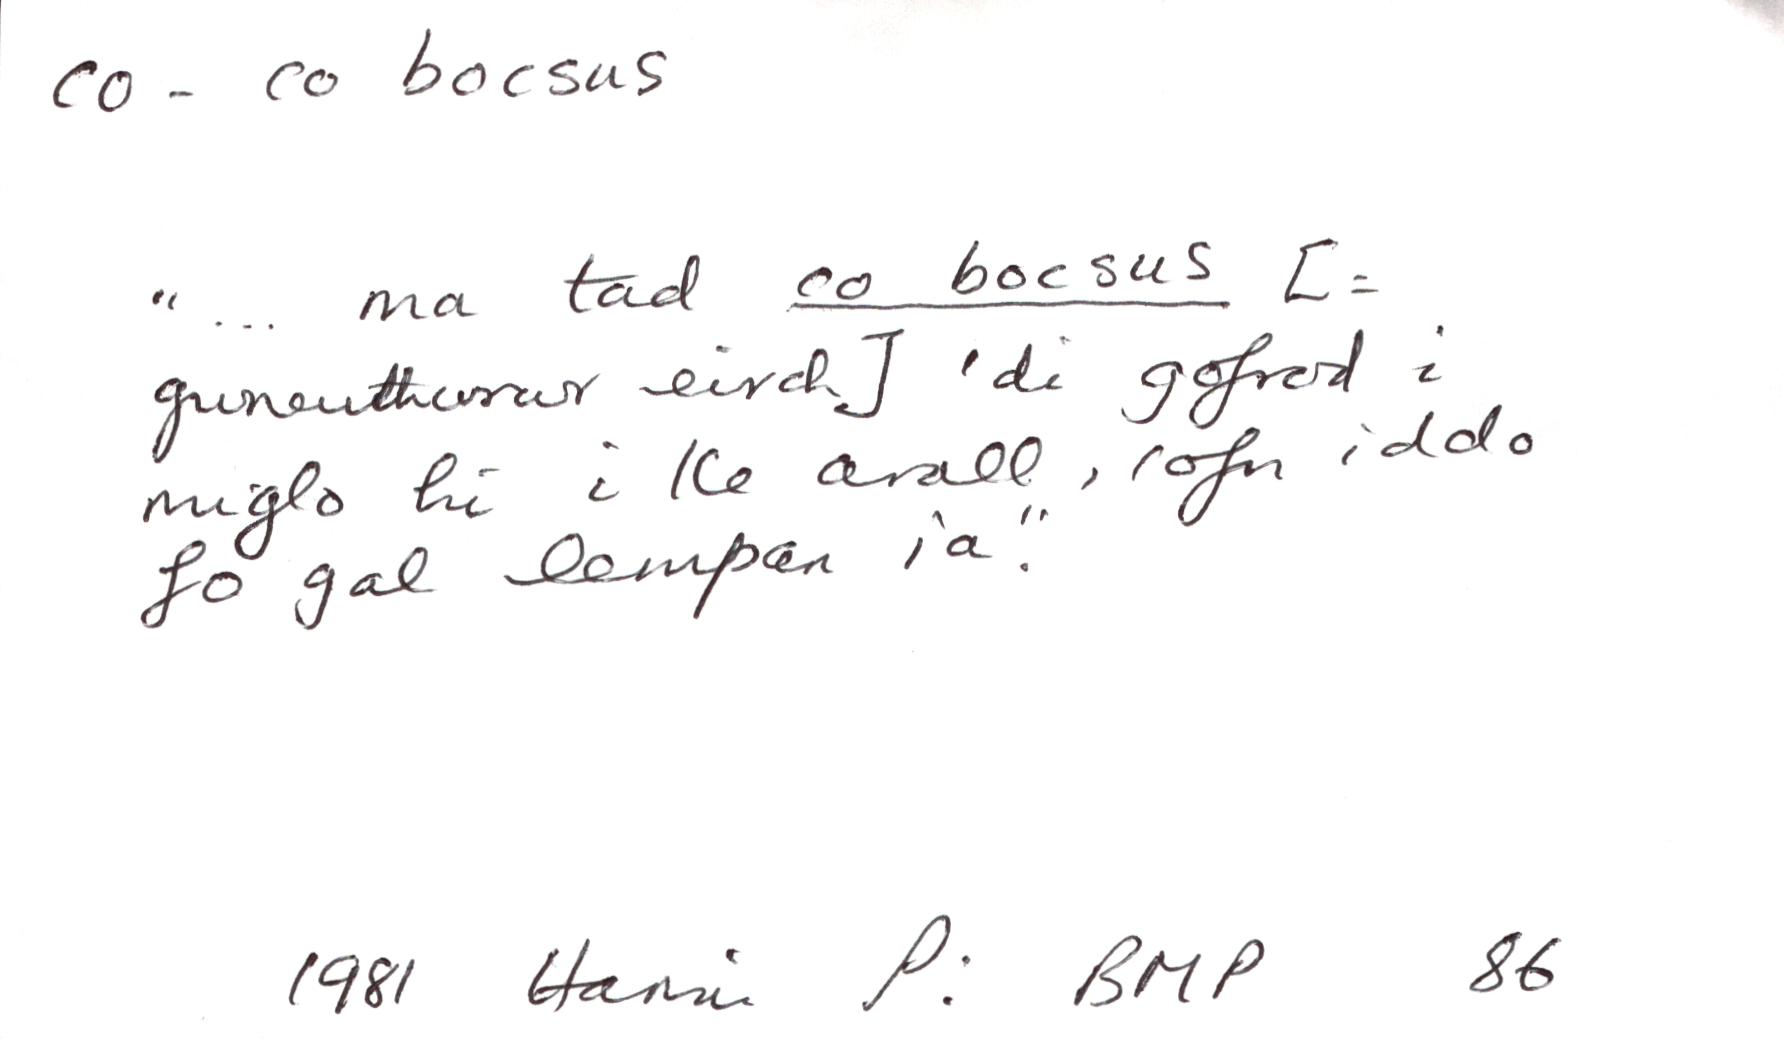 co - co bocsus
"... ma tad co bocsus [=
gwneuthurwr eirch] 'di gofrod i
miglo hi i lle arall, rofn iddo
fo gal lempan ia".
1981 Harri P: BMP 86